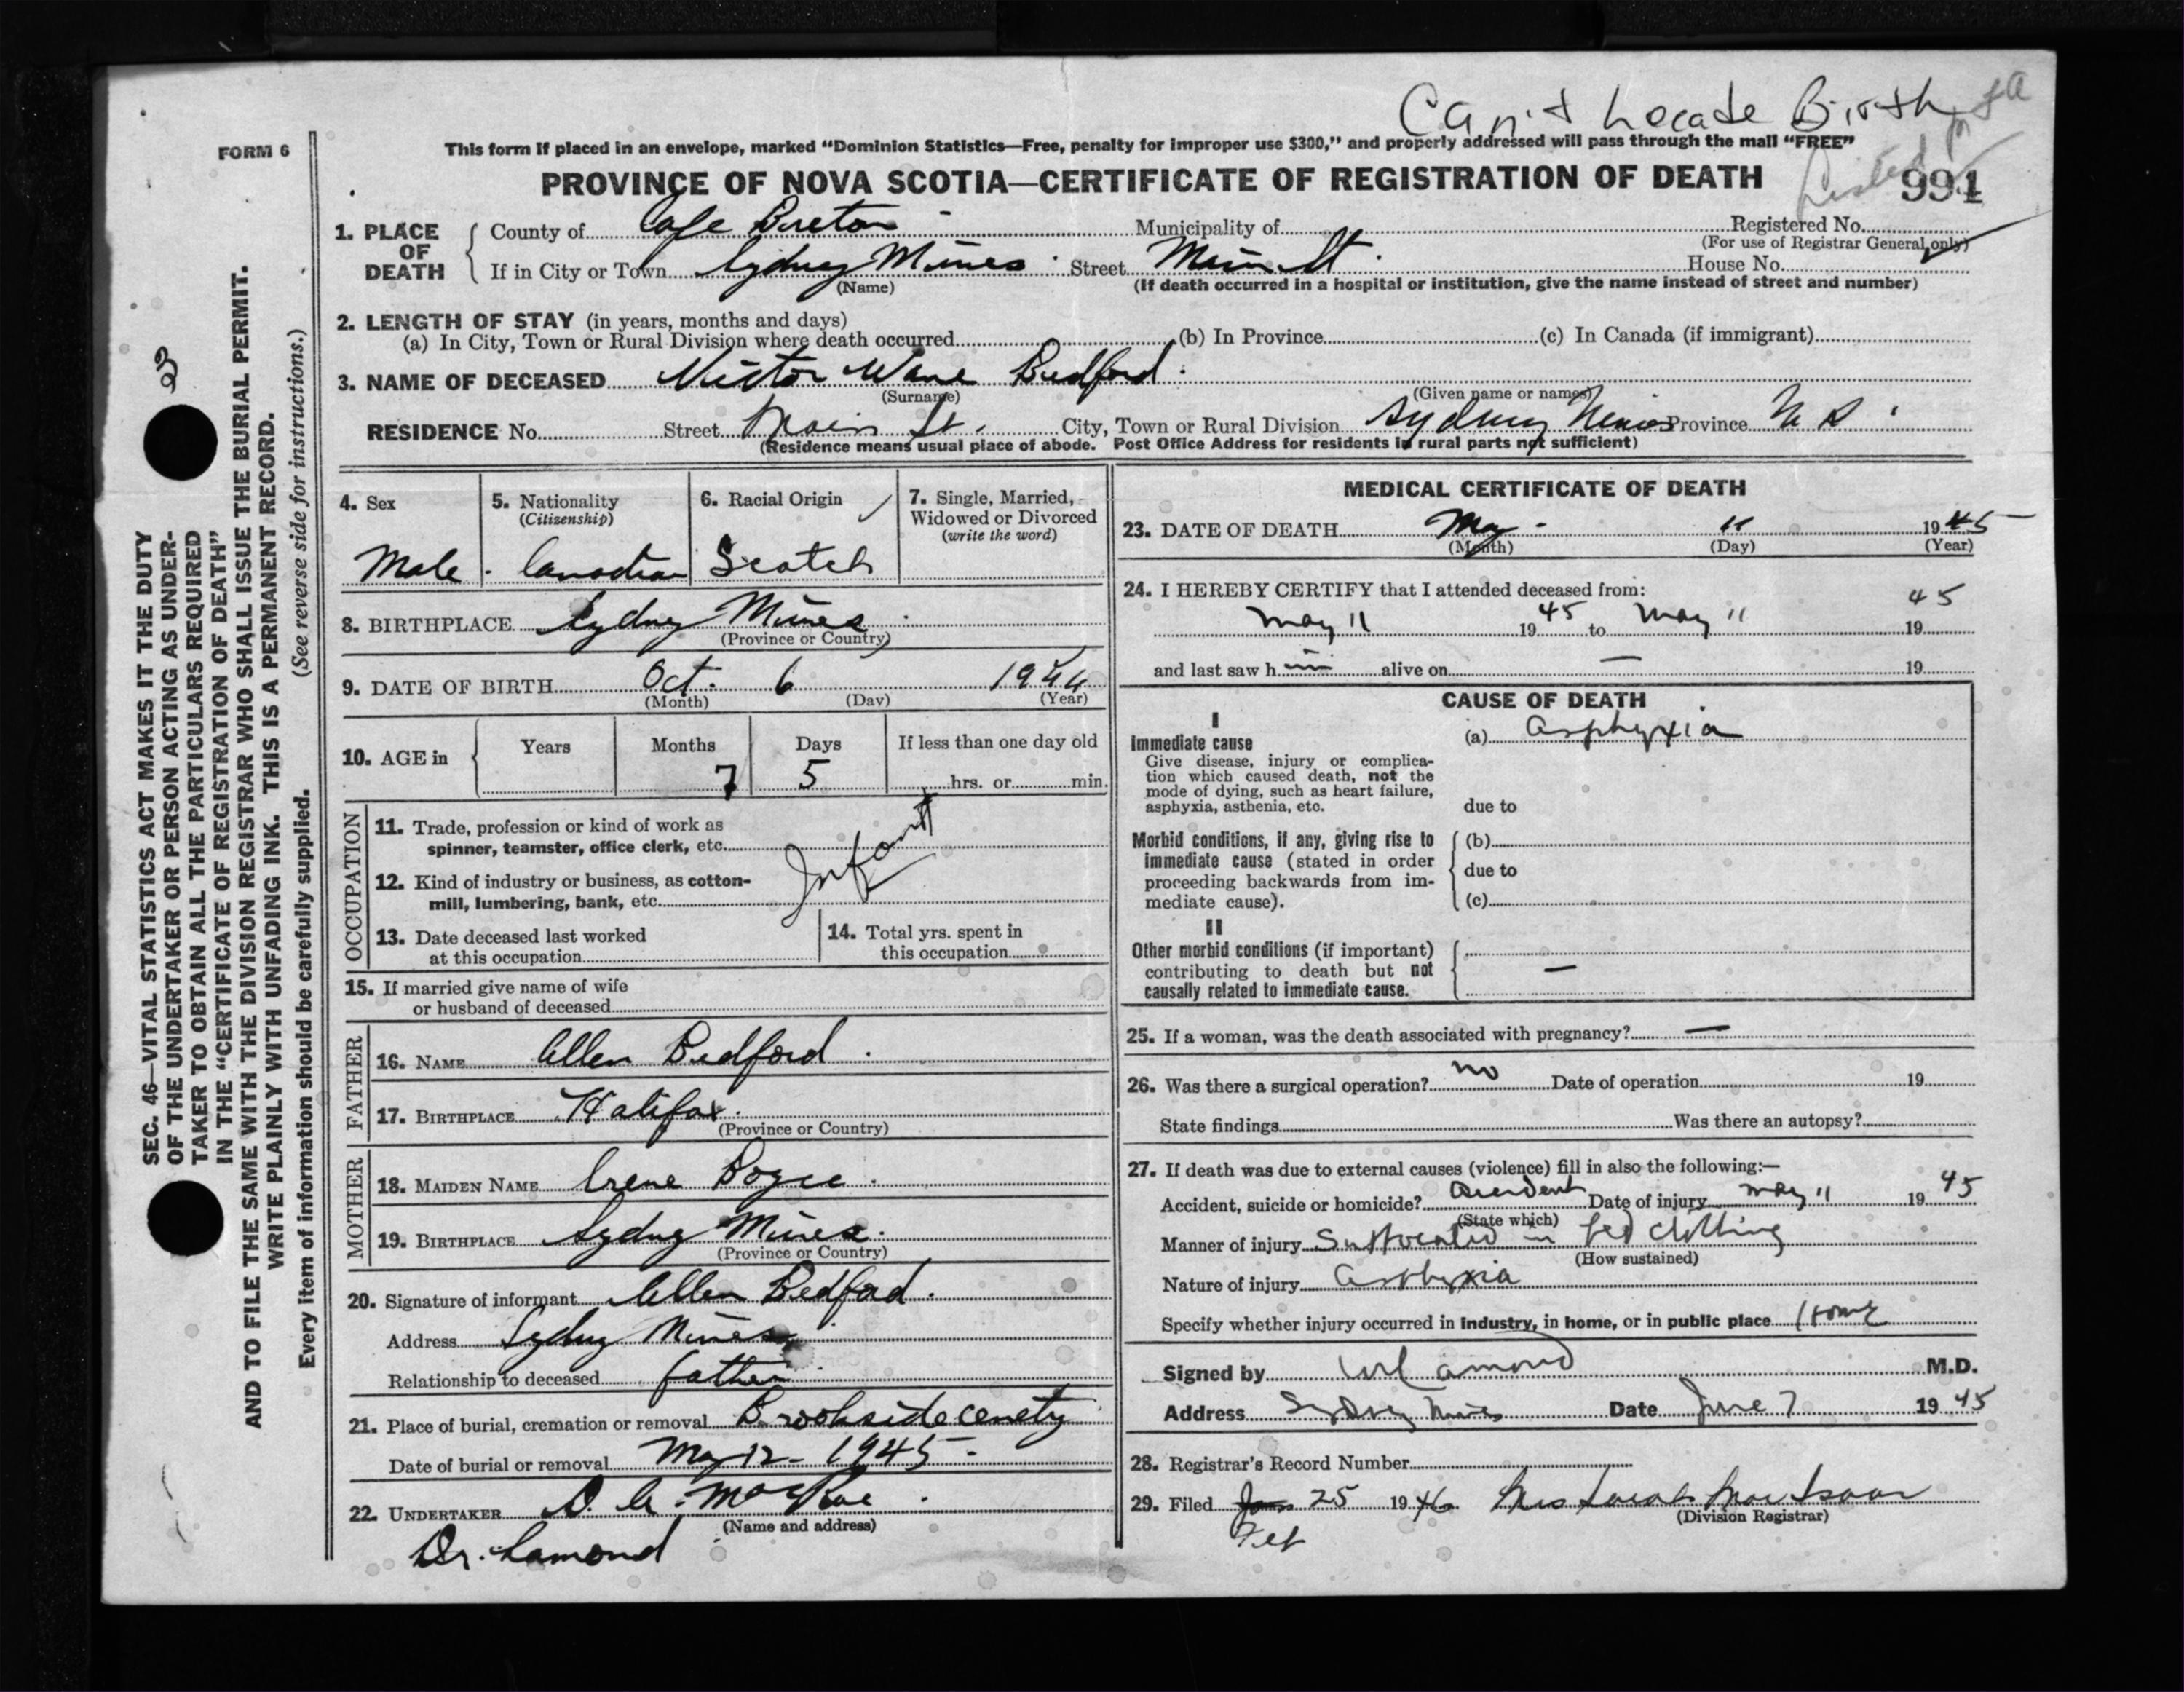 Can't Locate Birth
FORM 6
This form if placed in an envelope, marked "Dominion Statistics—Free, penalty for improper use $300," and properly addressed will pass through the mail "FREE"
PROVINCE OF NOVA SCOTIA—CERTIFICATE OF REGISTRATION OF DEATH
Listed
991
1. PLACE OF DEATH
County of Cape Breton Municipality of Registered No.
(For use of Registrar General only)
If in City or Town Sydney Mines Street Main St. House No.
(Name) (If death occurred in a hospital or institution, give the name instead of street and number)
2. LENGTH OF STAY (in years, months and days)
(a) In City, Town or Rural Division where death occurred (b) In Province (c) In Canada (if immigrant)
3. NAME OF DECEASED Victor Wane Bedford
(Surname) (Given name or names)
RESIDENCE No. Street Main St. City, Town or Rural Division Sydney Mines Province N S
(Residence means usual place of abode. Post Office Address for residents in rural parts not sufficient)
4. Sex 5. Nationality 6. Racial Origin 7. Single, Married,
(Citizenship) Widowed or Divorced
(write the word)
Male Canadian Scotch
8. BIRTHPLACE Sydney Mines
(Province or Country)
9. DATE OF BIRTH Oct. 6 1944
(Month) (Day) (Year)
10. AGE in Years Months Days If less than one day old
7 5 hrs. or min.
OCCUPATION
11. Trade, profession or kind of work as
spinner, teamster, office clerk, etc.
Infant
12. Kind of industry or business, as cotton-
mill, lumbering, bank, etc.
13. Date deceased last worked
at this occupation
14. Total yrs. spent in
this occupation
15. If married give name of wife
or husband of deceased
FATHER
16. NAME Allen Bedford
17. BIRTHPLACE Halifax
(Province or Country)
MOTHER
18. MAIDEN NAME Irene Bogee
19. BIRTHPLACE Sydney Mines
(Province or Country)
20. Signature of informant Allen Bedford
Address Sydney Mines
Relationship to deceased father
21. Place of burial, cremation or removal Brookside cemety
Date of burial or removal May 12 - 1945
22. UNDERTAKER D. A. MacRae
(Name and address)
Dr. Lamond
MEDICAL CERTIFICATE OF DEATH
23. DATE OF DEATH May 11 1945
(Month) (Day) (Year)
24. I HEREBY CERTIFY that I attended deceased from:
May 11 1945 to May 11 1945
and last saw h im alive on — 19
CAUSE OF DEATH
I
Immediate cause
Give disease, injury or complica-
tion which caused death, not the
mode of dying, such as heart failure,
asphyxia, asthenia, etc.
(a) asphyxia
due to
Morbid conditions, if any, giving rise to
immediate cause (stated in order
proceeding backwards from im-
mediate cause).
(b)
due to
(c)
II
Other morbid conditions (if important)
contributing to death but not
causally related to immediate cause.
—
25. If a woman, was the death associated with pregnancy? —
26. Was there a surgical operation? no Date of operation 19
State findings Was there an autopsy?
27. If death was due to external causes (violence) fill in also the following:—
Accident, suicide or homicide? Accident Date of injury May 11 1945
(State which)
Manner of injury Suffocated in bed clothing
(How sustained)
Nature of injury asphyxia
Specify whether injury occurred in industry, in home, or in public place Home
Signed by Lamond M.D.
Address Sydney Mines Date June 7 1945
28. Registrar's Record Number
29. Filed Jan 25 1946 Mrs Sarah MacIsaac
Feb (Division Registrar)
SEC. 46—VITAL STATISTICS ACT MAKES IT THE DUTY
OF THE UNDERTAKER OR PERSON ACTING AS UNDER-
TAKER TO OBTAIN ALL THE PARTICULARS REQUIRED
IN THE "CERTIFICATE OF REGISTRATION OF DEATH"
AND TO FILE THE SAME WITH THE DIVISION REGISTRAR WHO SHALL ISSUE THE BURIAL PERMIT.
WRITE PLAINLY WITH UNFADING INK. THIS IS A PERMANENT RECORD.
Every item of information should be carefully supplied. (See reverse side for instructions.)